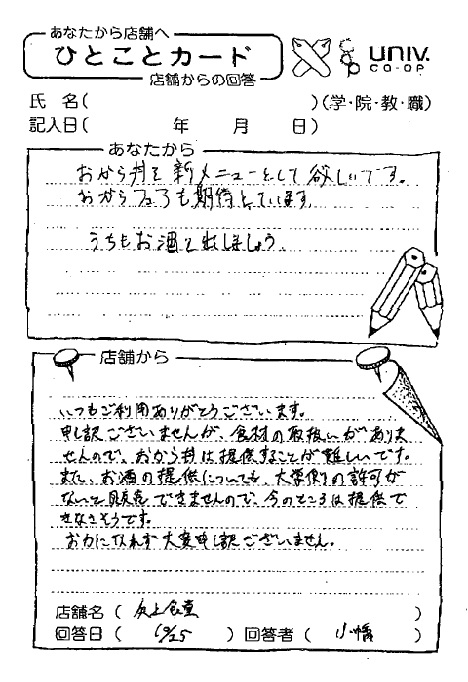 あなたから店舗へ
ひとことカード
店舗からの回答
UNIV.
CO-OP
氏 名( )(学・院・教・職)
記入日( 年 月 日)
あなたから
おから丼を新メニューとして欲しいです。
おからフェアも期待しています。
うちもお酒を出しましょう。
店舗から
いつもご利用ありがとうございます。
申し訳ございませんが、食材の取扱いがありま
せんので、おから丼は提供することが難しいです。
また、お酒の提供についても、大学側の許可が
ないと販売できませんので、今のところは提供で
きなさそうです。
お力になれず大変申し訳ございません。
店舗名( 食堂 )
回答日( 10/25 ) 回答者( 小幡 )